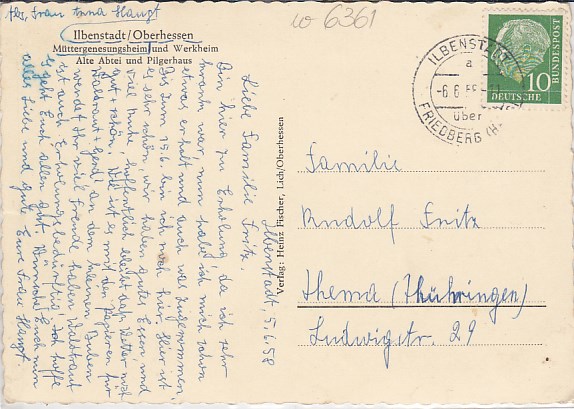 Abs. Frau Anna Haupt
w 6361
Ilbenstadt/Oberhessen
Müttergenesungsheim und Werkheim
Alte Abtei und Pilgerhaus
ILBENSTADT
a
-6.6.58-11
über
FRIEDBERG (H
10
DEUTSCHE
BUNDESPOST
Ilbenstadt, 5.6.58
Liebe Familie Fritz.
Bin hier zu Erholung da ich sehr
krank war, nun habe ich mich schon
etwas erholt und auch was zugenommen,
bis zum 19.6. bin ich noch hier. Hier ist
es sehr schön, wir haben gutes Essen und
viel Ruhe hoffentlich bleibt das Wetter
gut + schön. Wie ist es mit den Papieren für
Waldtraut + Gerd, an dem kleinen Buben
werdet Ihr viel Freude haben. Waldtraut
ist auch Erholungsbedürftig. Ich hoffe
es geht Euch allen gut. Wünsche Euch nun
alles Liebe und gute Eure Frau
Haupt.
Verlag: Heinz Fischer, Lich/Oberhessen
Familie
Rudolf Fritz
Thema (Thühringen)
Ludwigstr. 29